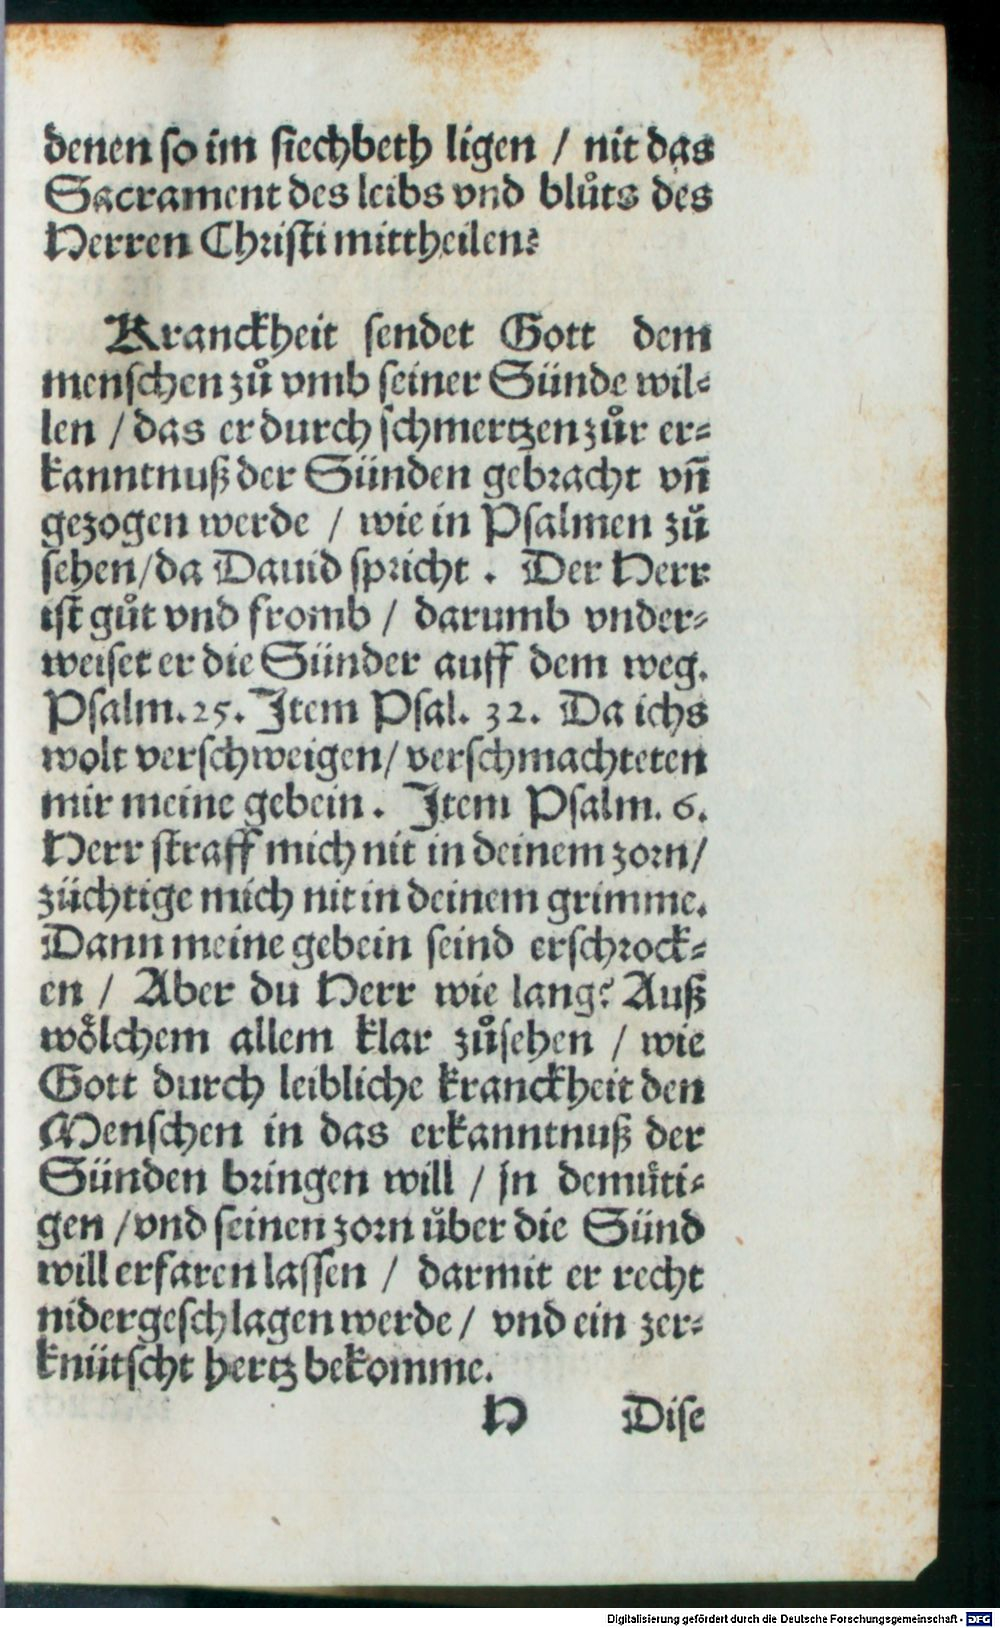 denen so im siechbeth ligen / nit das
Sacrament des leibs vnd blůts des
Herren Christi mittheilen?
Kranckheit sendet Gott dem
menschen zů vmb seiner Sünde wil⸗
len / das er durch schmertzen zůr er⸗
kanntnuß der Sünden gebracht vñ
gezogen werde / wie in Psalmen zů
sehen/da Dauid spricht. Der Herr
ist gůt vnd fromb / darumb vnder⸗
weiset er die Sünder auff dem weg.
Psalm.25. Item Psal. 32. Da ichs
wolt verschweigen/ verschmachteten
mir meine gebein. Item Psalm. 6.
Herr straff mich nit in deinem zorn/
züchtige mich nit in deinem grimme.
Dann meine gebein seind erschrock⸗
en / Aber du Herr wie lang? Auß
wölchem allem klar zůsehen / wie
Gott durch leibliche kranckheit den
Menschen in das erkanntnuß der
Sünden bringen will / jn demüti⸗
gen /vnd seinen zorn über die Sünd
will erfaren lassen / darmit er recht
nidergeschlagen werde/ vnd ein zer⸗
knütscht hertz bekomme.
H Dise
Digitalisierung gefördert durch die Deutsche Forschungsgemeinschaft - DFG